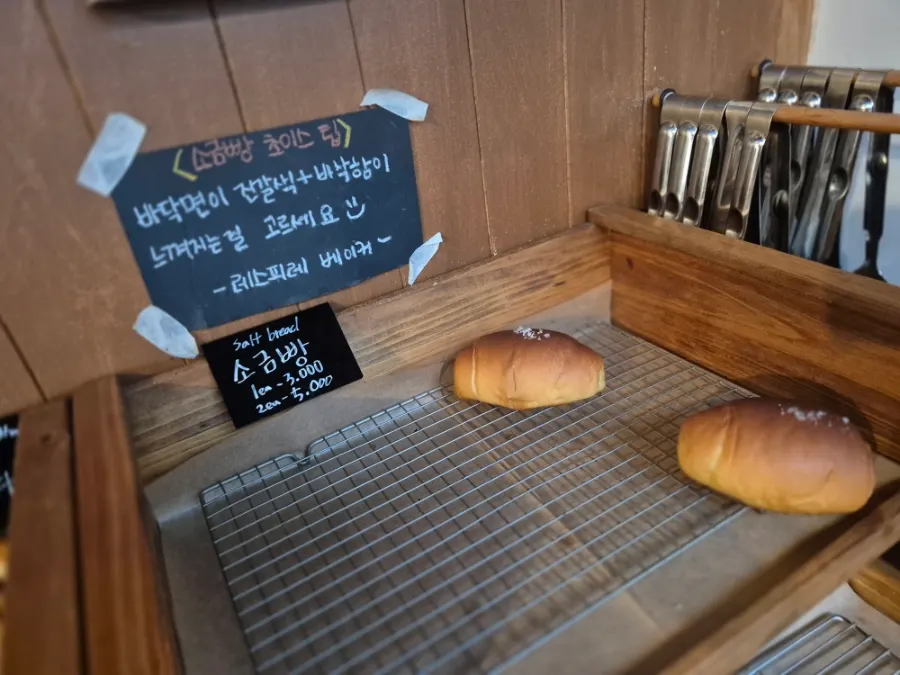 <소금빵 초이스 팁>
바닥면이 진갈색+바삭함이
느껴지는걸 고르세요 :)
-레스피레 베이커-
salt bread
소금빵
1ea-3.000
2ea-5.000